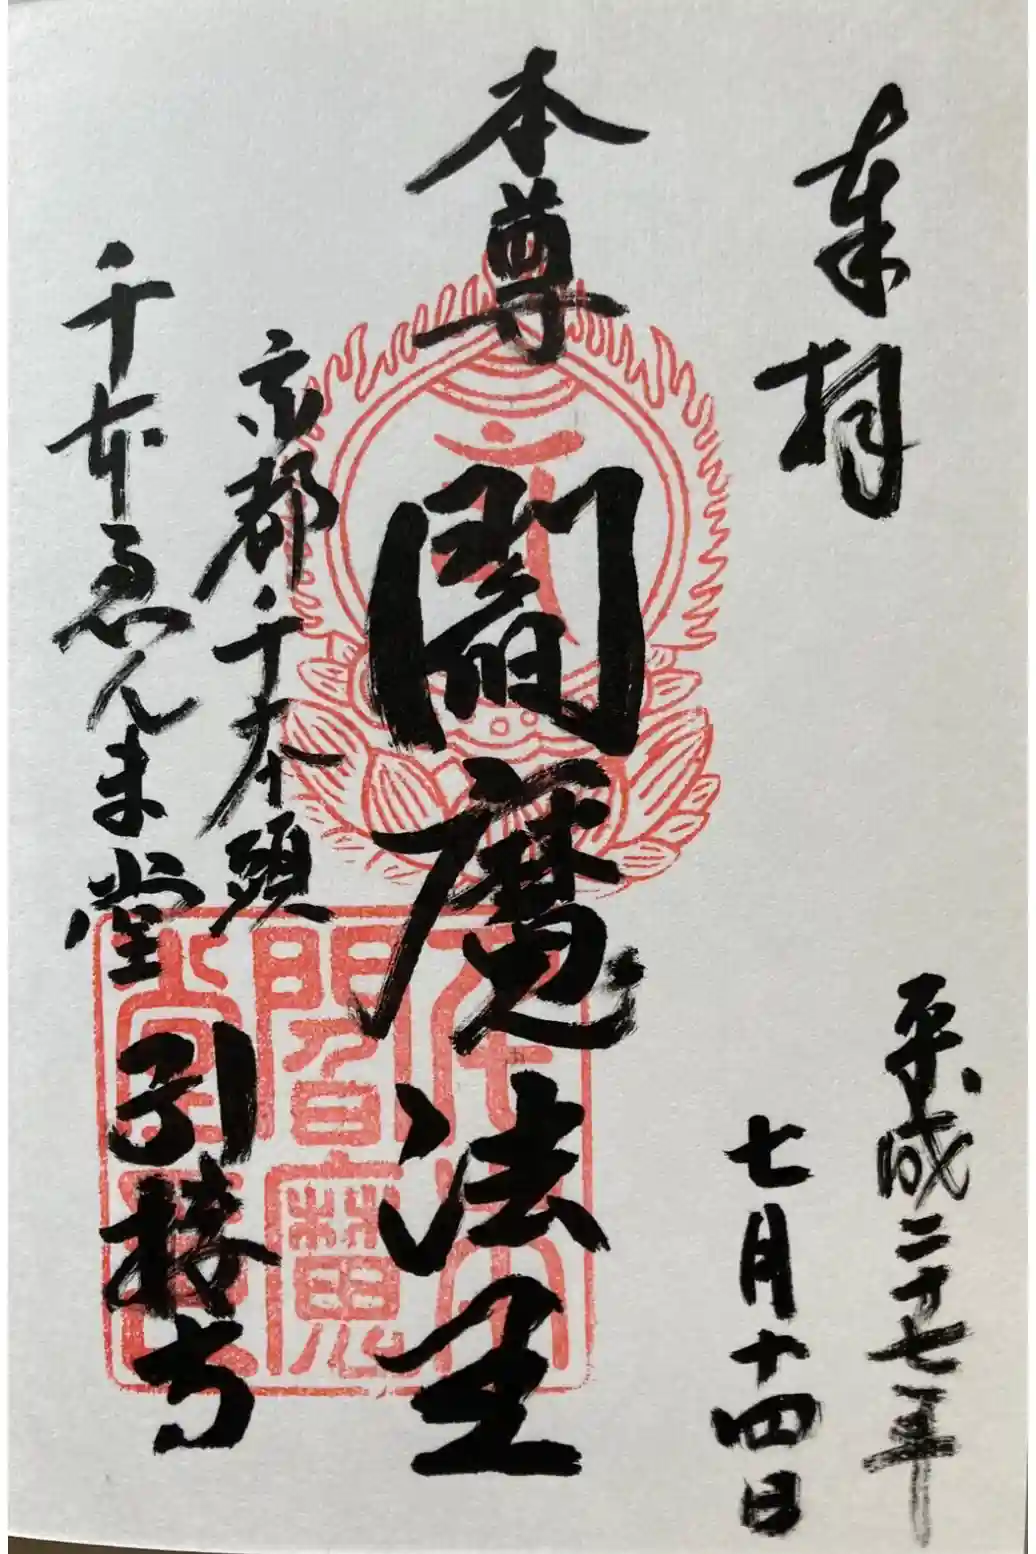 奉拝
平成二十七年
七月十四日
本尊
閻魔法王
京都千本頭
千本ゑんま堂
引接寺
千本
閻魔
堂